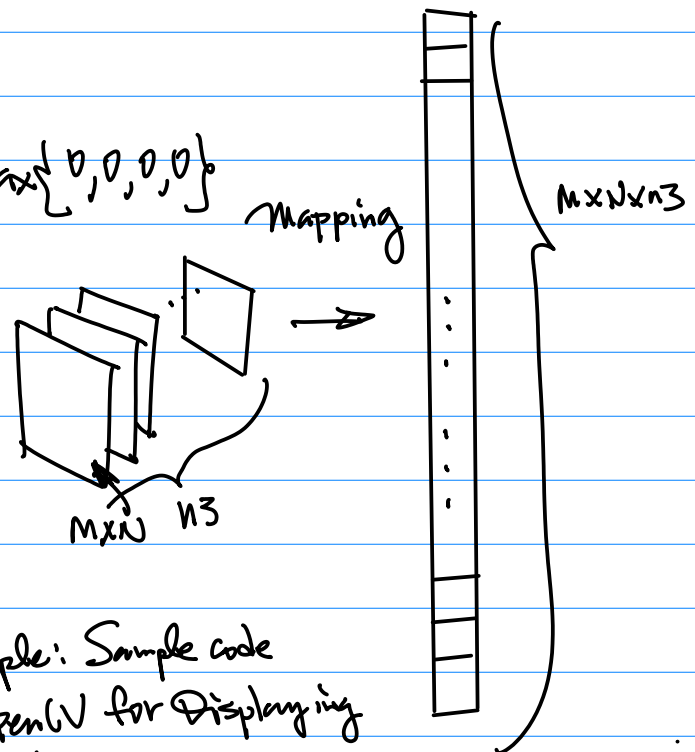 ax{0,0,0,0}
Mapping
MxNxn3
MxN n3
ple: Sample code
penCV for Displaying